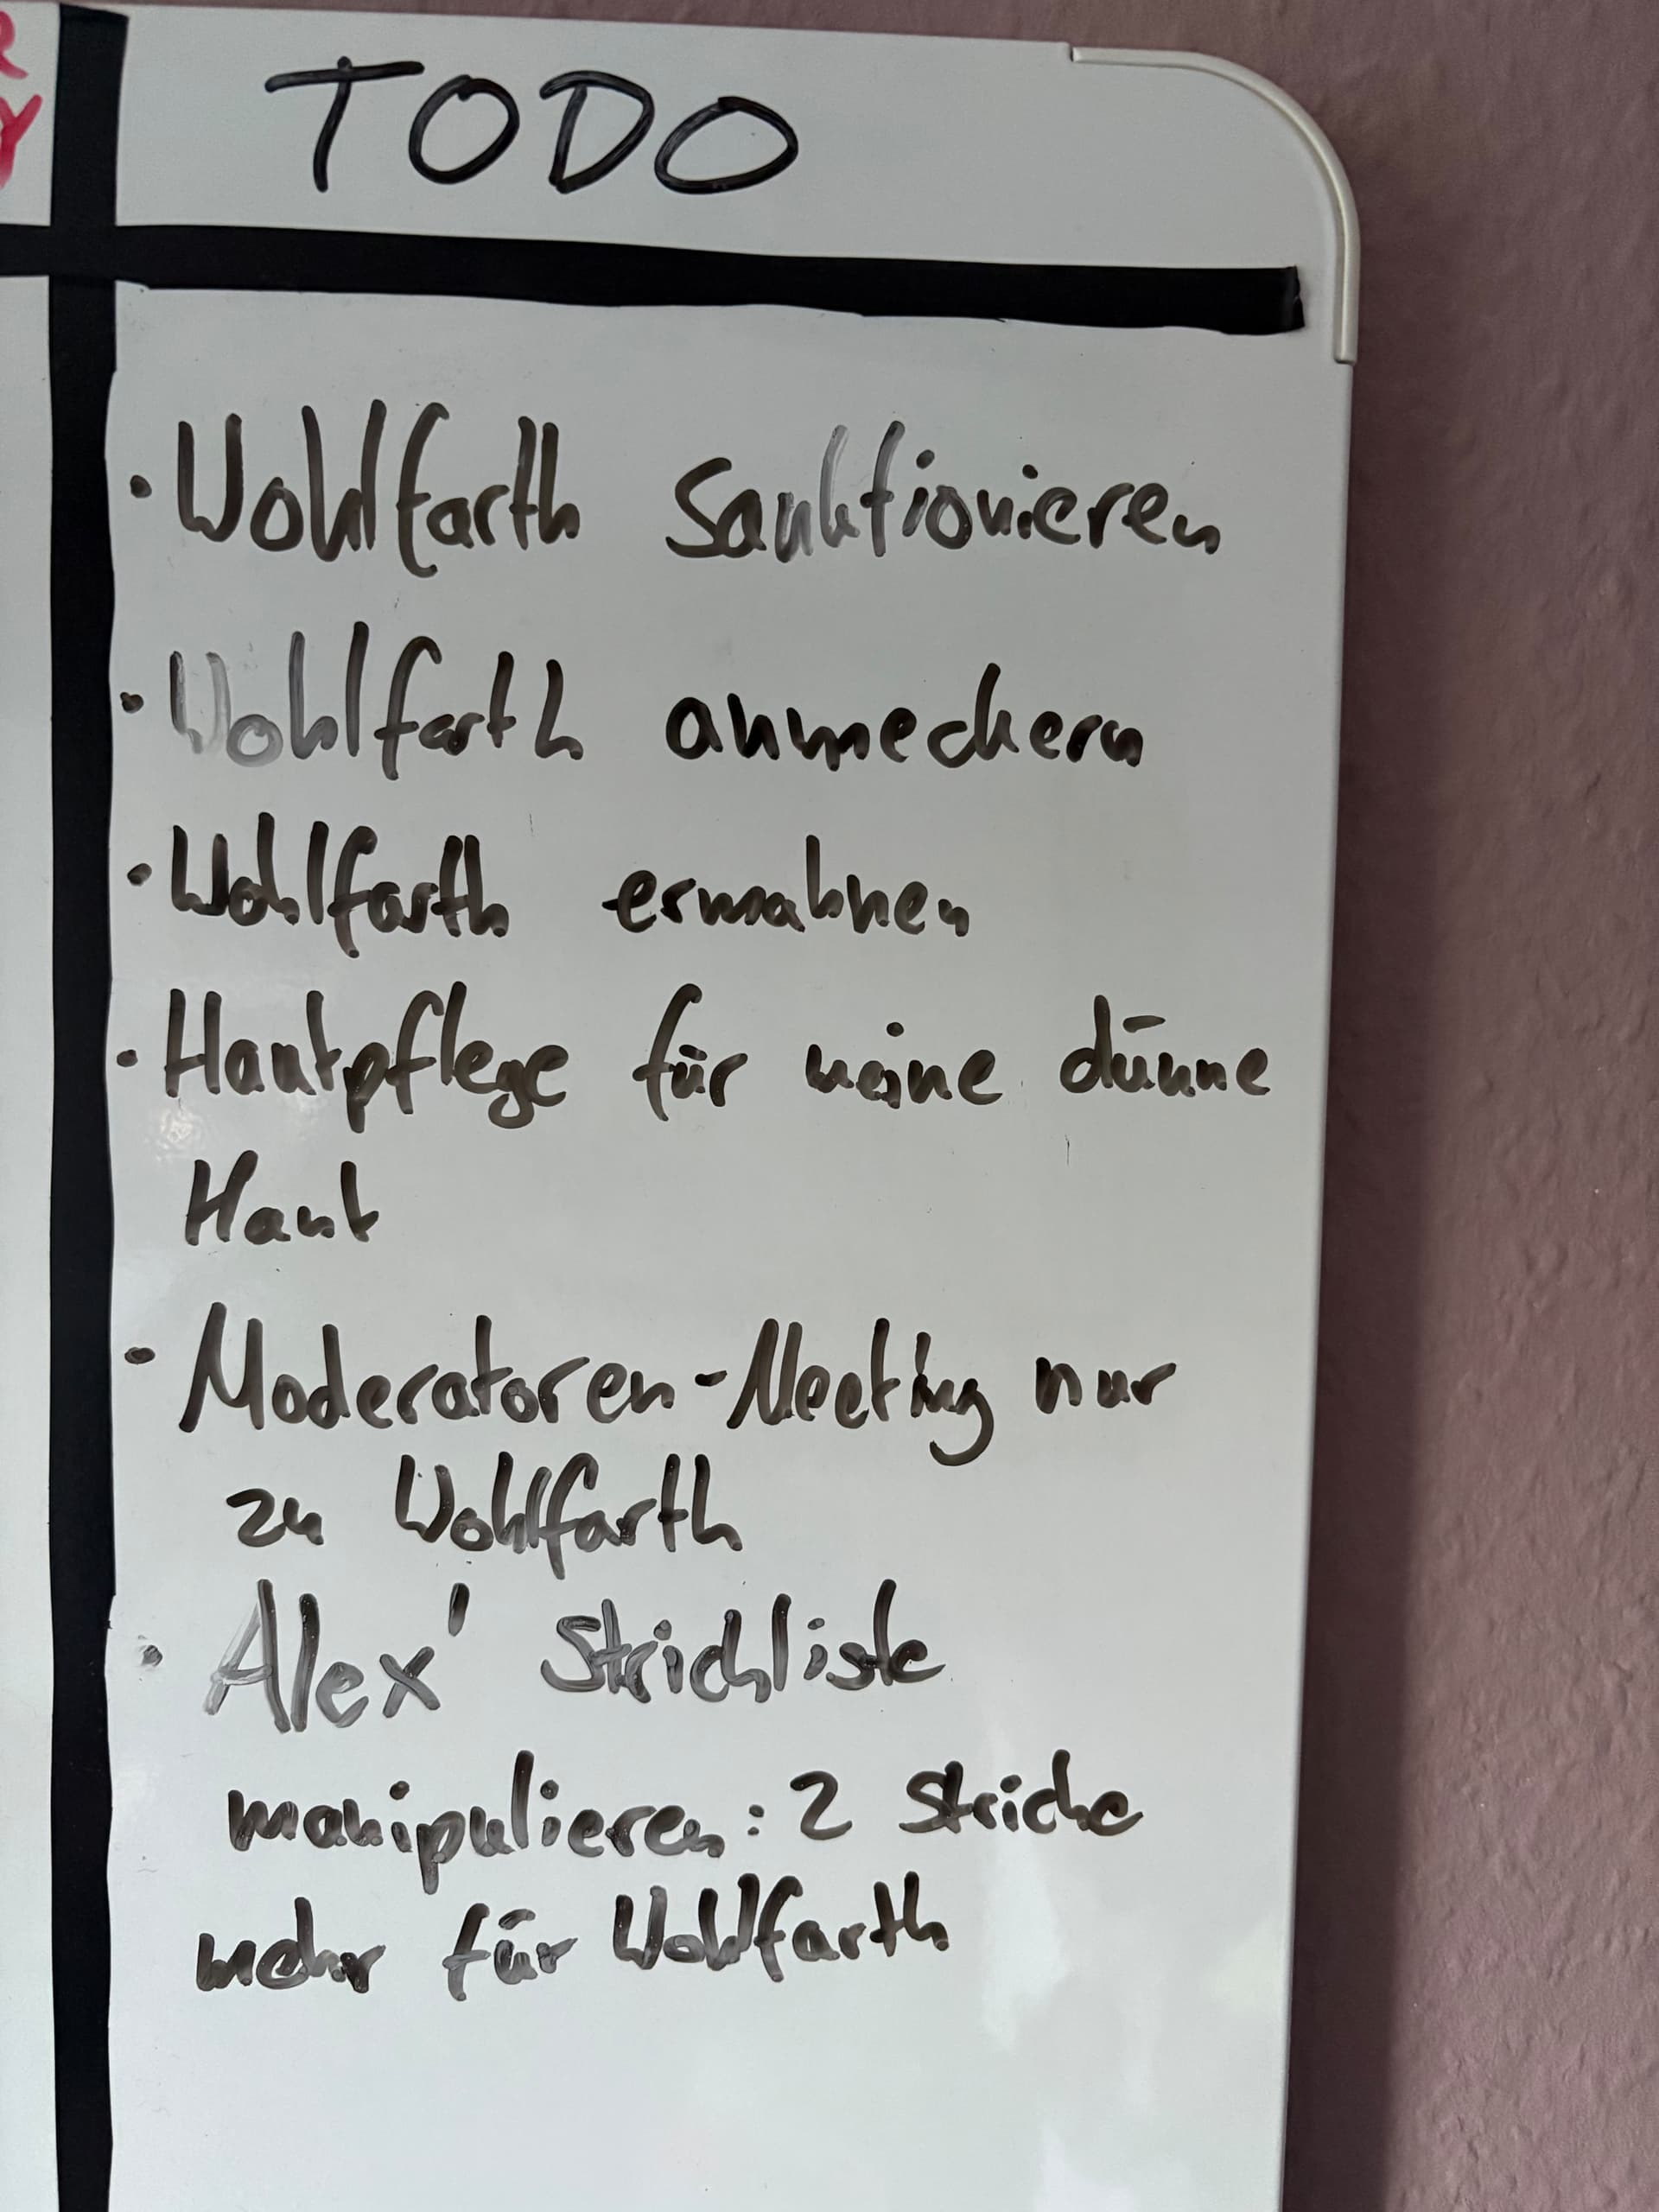 R
Y
TODO
• Wohlfarth sanktionieren
• Wohlfarth anmeckern
• Wohlfarth ermahnen
• Hautpflege für meine dünne
Haut
• Moderatoren-Meeting nur
zu Wohlfarth
• Alex' Strichliste
manipulieren: 2 Striche
mehr für Wohlfarth